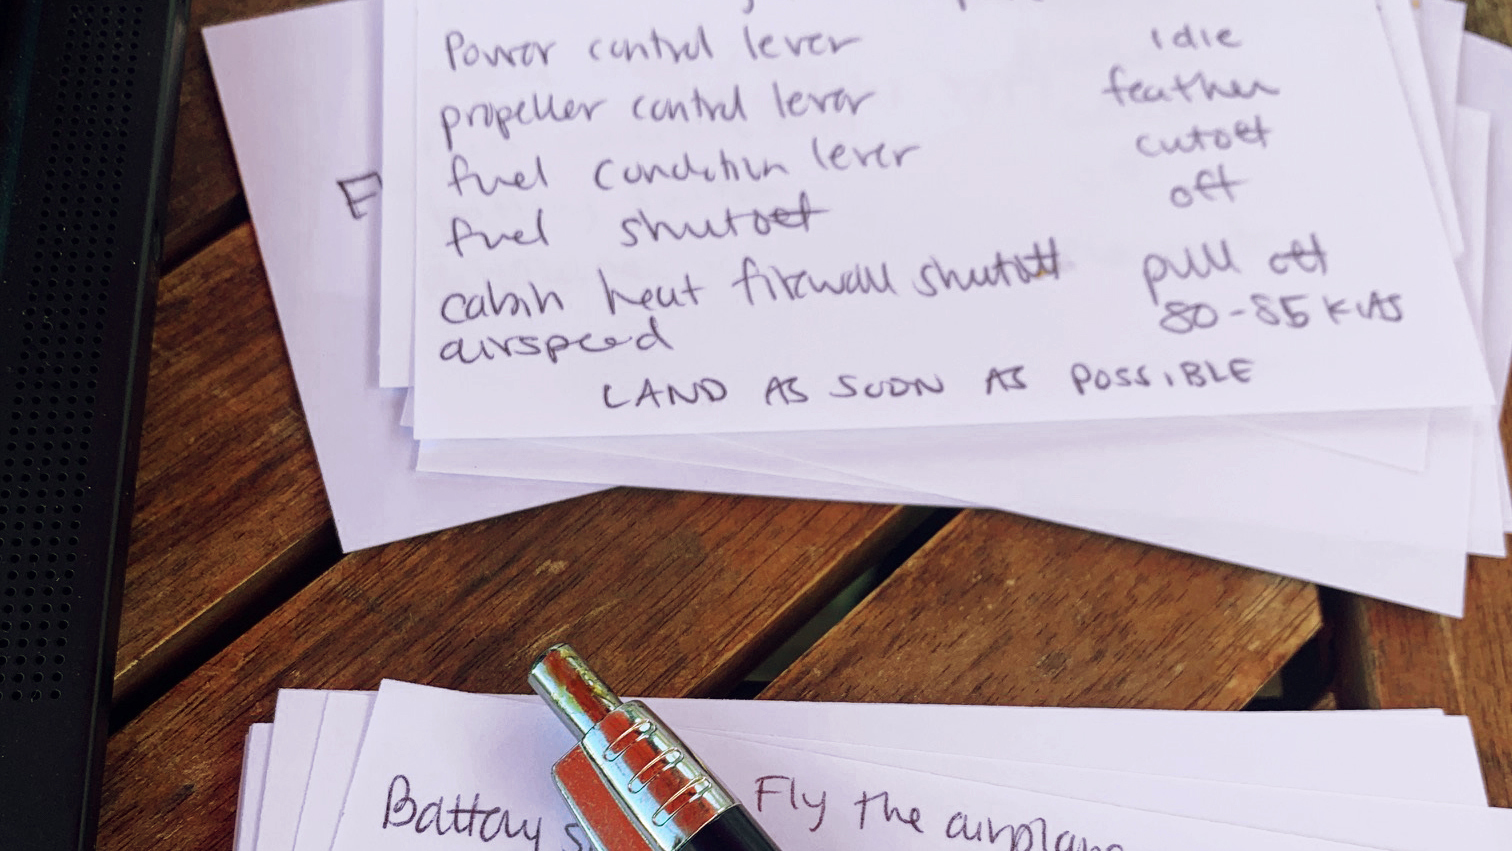 Power control lever idle
propeller control lever feather
fuel condition lever cutoff
fuel shutoff off
cabin heat firewall shutoff pull off
airspeed 80-85 KIAS
LAND AS SOON AS POSSIBLE
F
Battery
Fly the airplane